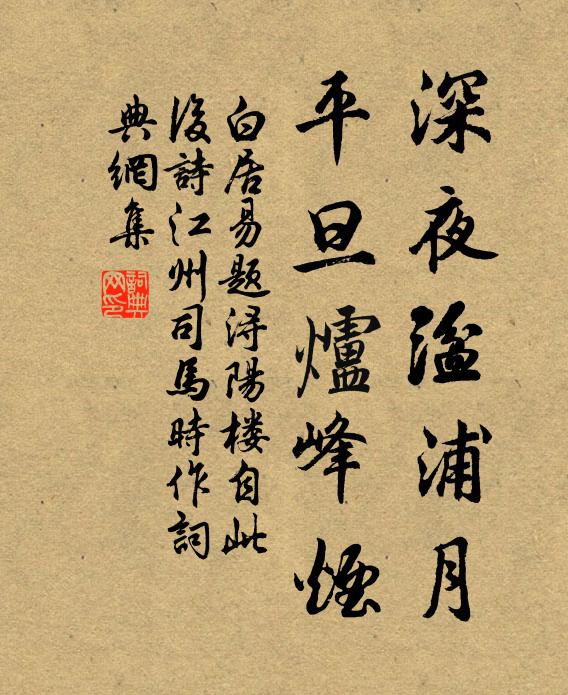 深夜湓浦月
平旦爐峰煙
白居易题浔陽楼自此
後詩江州司馬時作詞
典網集
詞典网印